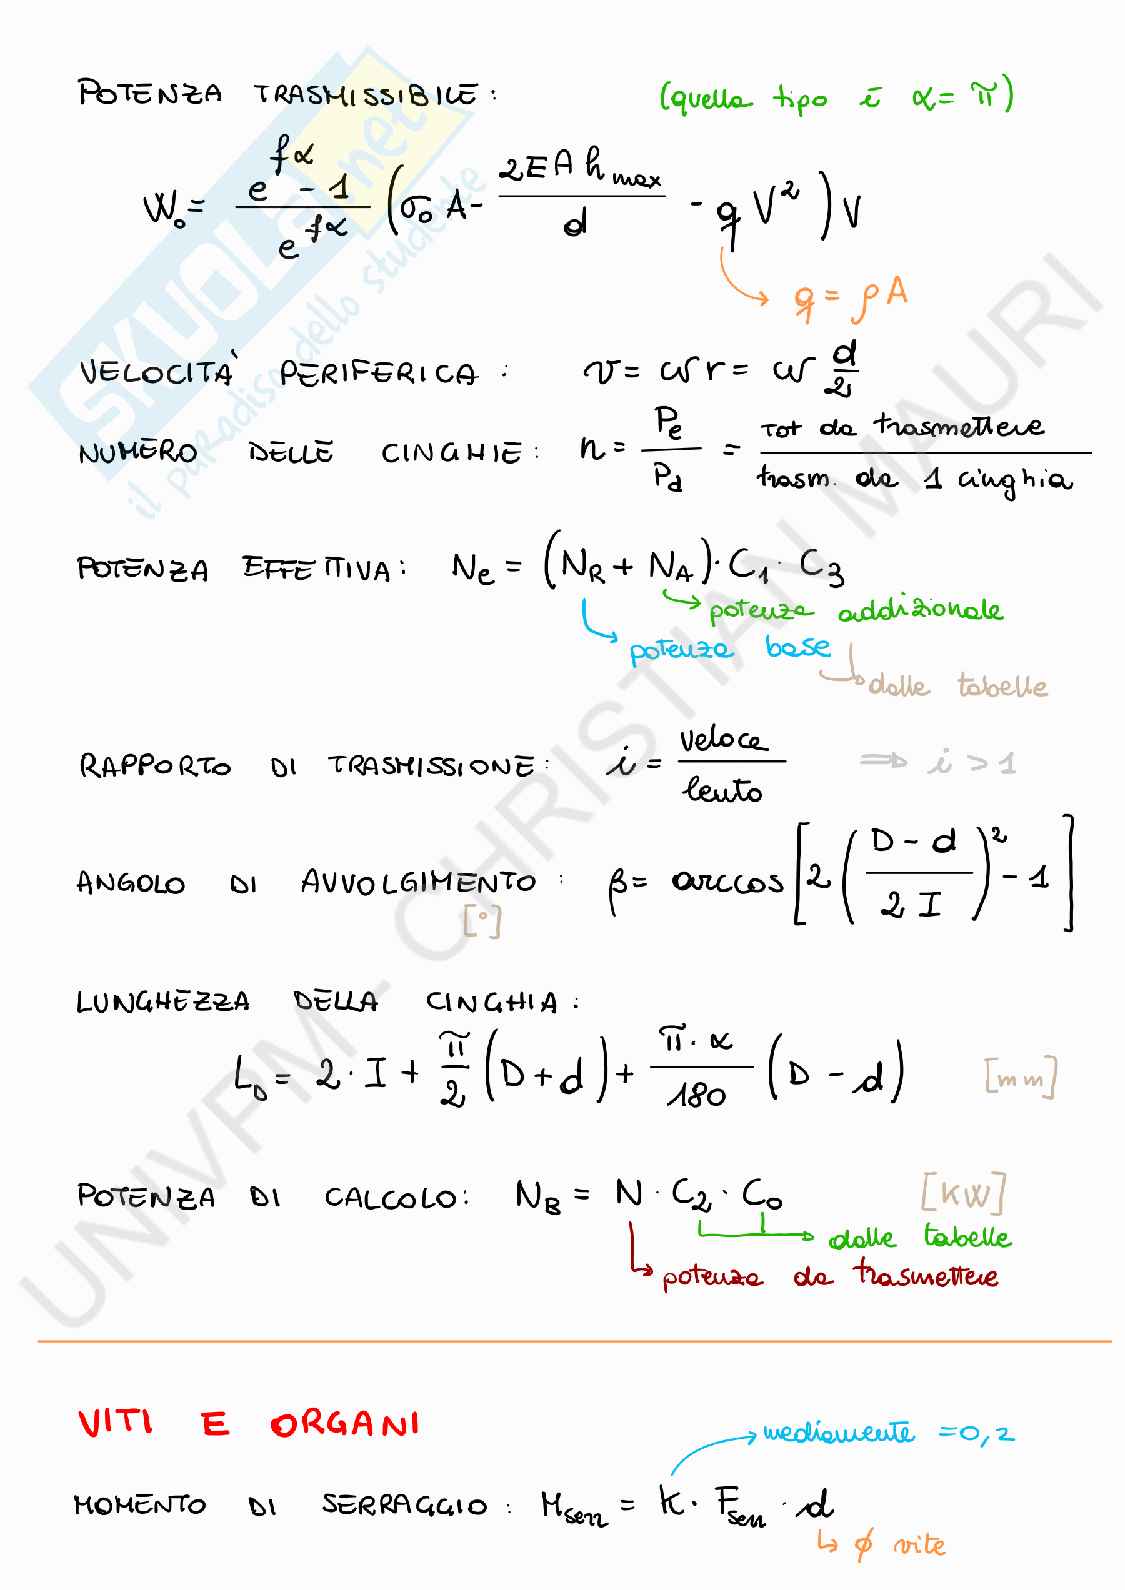 POTENZA TRASMISSIBILE: (quella tipo è α = π)
W₀ = (e^{fα} - 1) / e^{fα} (σ₀ A - 2EA h_max / d - q V²) V
q = ρA
VELOCITÀ PERIFERICA: v = ω r = ω d/2
NUMERO DELLE CINGHIE: n = Pe / Pd = Tot da trasmettere / trasm. da 1 cinghia
POTENZA EFFETTIVA: Ne = (N_R + N_A) · C₁ · C₃
potenza addizionale
potenza base
dalle tabelle
RAPPORTO DI TRASMISSIONE: i = veloce / lento ⇒ i > 1
ANGOLO DI AVVOLGIMENTO: β = arccos [2 ((D - d) / 2I)² - 1]
[°]
LUNGHEZZA DELLA CINGHIA:
L_D = 2 · I + π/2 (D + d) + π · α / 180 (D - d) [mm]
POTENZA DI CALCOLO: N_B = N · C₂ · C₀ [KW]
dalle tabelle
potenza da trasmettere
VITI E ORGANI
mediamente = 0,2
MOMENTO DI SERRAGGIO: M_serr = K · F_serr · d
ϕ vite
SKUOLA.net
il paradiso dello studente
UNIVPM - CHRISTIAN MAURI